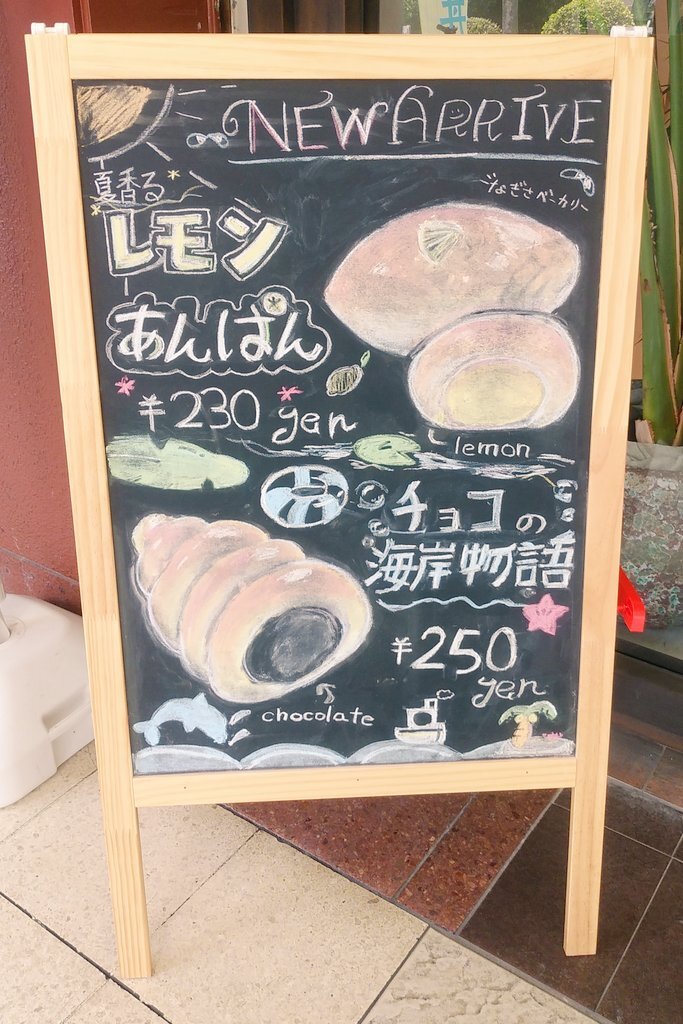 NEW ARRIVE
なぎさベーカリー
夏香る
レモン
あんぱん
¥230 yen
lemon
チョコの
海岸物語
¥250
yen
chocolate